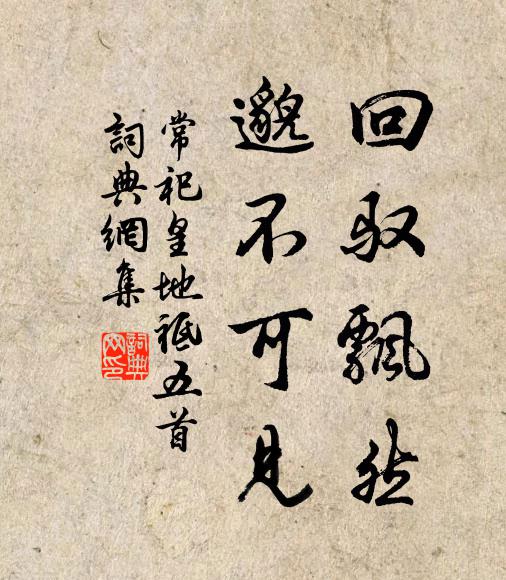 回驭飄然
邈不可見
常祀皇地祗五首
詞典網集
詞典網印